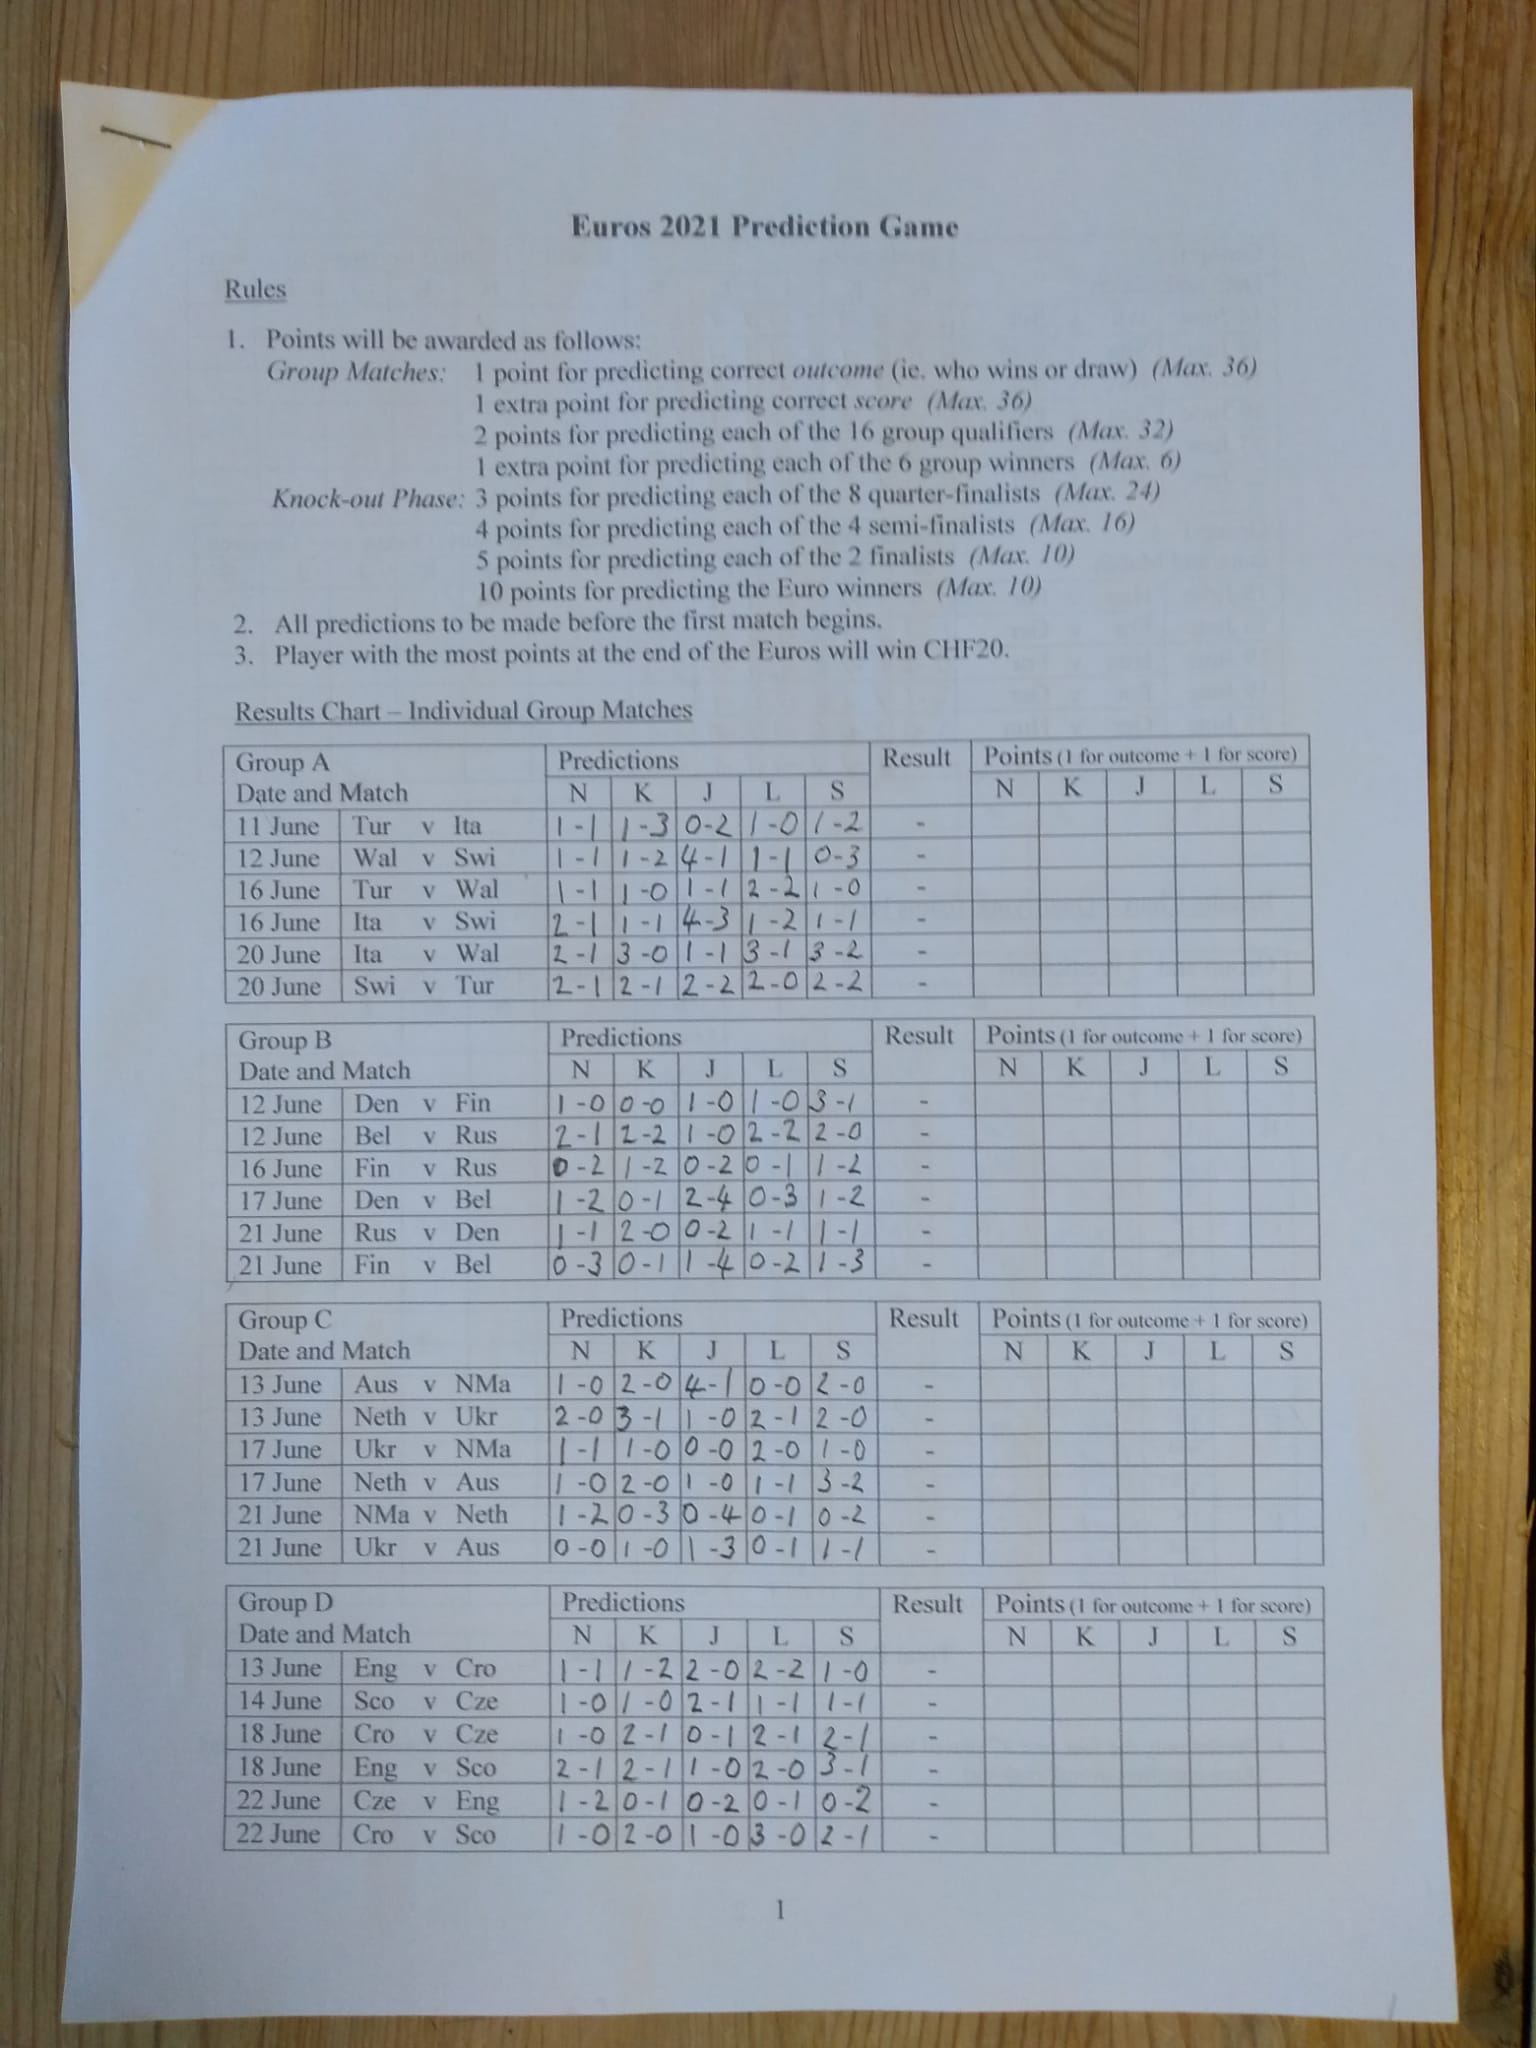 Euros 2021 Prediction Game
Rules
1. Points will be awarded as follows:
Group Matches: 1 point for predicting correct outcome (ie. who wins or draw) (Max. 36)
1 extra point for predicting correct score (Max. 36)
2 points for predicting each of the 16 group qualifiers (Max. 32)
1 extra point for predicting each of the 6 group winners (Max. 6)
Knock-out Phase: 3 points for predicting each of the 8 quarter-finalists (Max. 24)
4 points for predicting each of the 4 semi-finalists (Max. 16)
5 points for predicting each of the 2 finalists (Max. 10)
10 points for predicting the Euro winners (Max. 10)
2. All predictions to be made before the first match begins.
3. Player with the most points at the end of the Euros will win CHF20.
Results Chart – Individual Group Matches
Group A Predictions Result Points (1 for outcome + 1 for score)
Date and Match N K J L S N K J L S
11 June Tur v Ita 1-1 1-3 0-2 1-0 1-2 -
12 June Wal v Swi 1-1 1-2 4-1 1-1 0-3 -
16 June Tur v Wal 1-1 1-0 1-1 2-2 1-0 -
16 June Ita v Swi 2-1 1-1 4-3 1-2 1-1 -
20 June Ita v Wal 2-1 3-0 1-1 3-1 3-2 -
20 June Swi v Tur 2-1 2-1 2-2 2-0 2-2 -
Group B Predictions Result Points (1 for outcome + 1 for score)
Date and Match N K J L S N K J L S
12 June Den v Fin 1-0 0-0 1-0 1-0 3-1 -
12 June Bel v Rus 2-1 2-2 1-0 2-2 2-0 -
16 June Fin v Rus 0-2 1-2 0-2 0-1 1-2 -
17 June Den v Bel 1-2 0-1 2-4 0-3 1-2 -
21 June Rus v Den 1-1 2-0 0-2 1-1 1-1 -
21 June Fin v Bel 0-3 0-1 1-4 0-2 1-3 -
Group C Predictions Result Points (1 for outcome + 1 for score)
Date and Match N K J L S N K J L S
13 June Aus v NMa 1-0 2-0 4-1 0-0 2-0 -
13 June Neth v Ukr 2-0 3-1 1-0 2-1 2-0 -
17 June Ukr v NMa 1-1 1-0 0-0 2-0 1-0 -
17 June Neth v Aus 1-0 2-0 1-0 1-1 3-2 -
21 June NMa v Neth 1-2 0-3 0-4 0-1 0-2 -
21 June Ukr v Aus 0-0 1-0 1-3 0-1 1-1 -
Group D Predictions Result Points (1 for outcome + 1 for score)
Date and Match N K J L S N K J L S
13 June Eng v Cro 1-1 1-2 2-0 2-2 1-0 -
14 June Sco v Cze 1-0 1-0 2-1 1-1 1-1 -
18 June Cro v Cze 1-0 2-1 0-1 2-1 2-1 -
18 June Eng v Sco 2-1 2-1 1-0 2-0 3-1 -
22 June Cze v Eng 1-2 0-1 0-2 0-1 0-2 -
22 June Cro v Sco 1-0 2-0 1-0 3-0 2-1 -
1